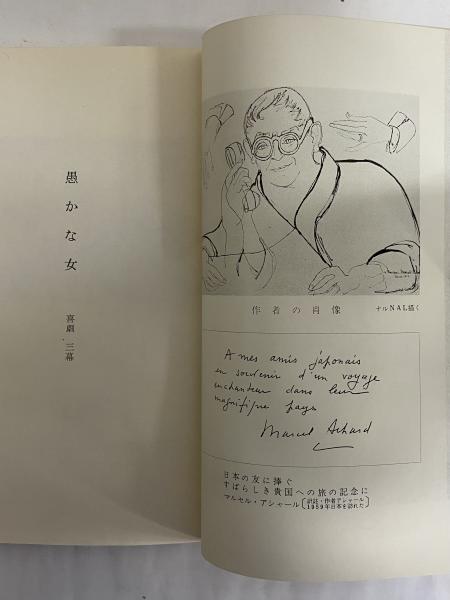 愚かな女
喜劇 三幕
作者の肖像
ナルNAL描く
A mes amis japonais
en souvenir d'un voyage
enchanteur dans leur
magnifique pays
Marcel Achard
日本の友に捧ぐ
すばらしき貴国への旅の記念に
マルセル・アシャール
訳註・作者アシャール
1959年日本を訪れた